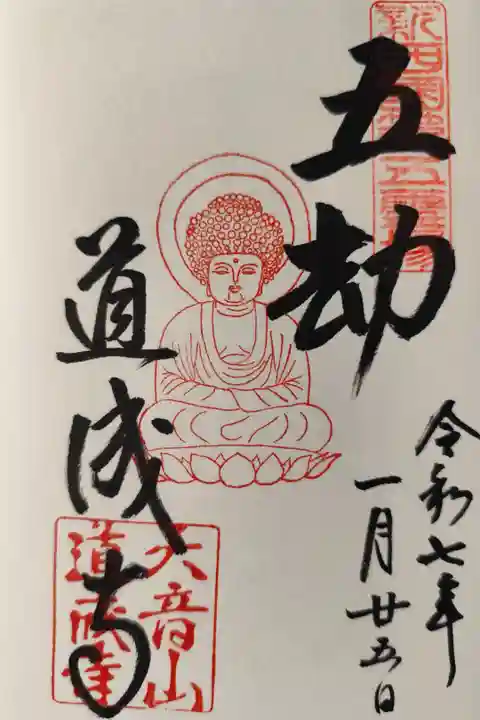 新西國第五靈場
五劫
令和七年
一月廿五日
道成寺
天音山
道成寺